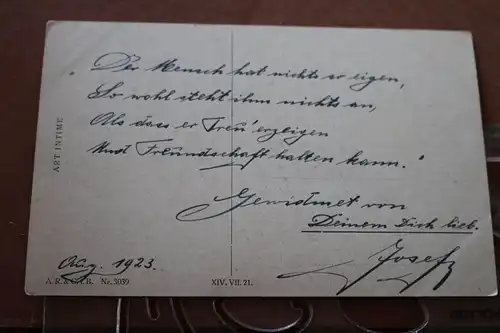 „Der Mensch hat nichts so eigen,
So wohl steht ihm nichts an,
Als dass er Treu' erzeigen
Und Freundschaft halten kann."
Gewidmet von
Deinem Dich lieb.
Josef
Aug. 1923.
ART INTIME
A. R. & C. i. B. Nr. 3039
XIV. VII. 21.